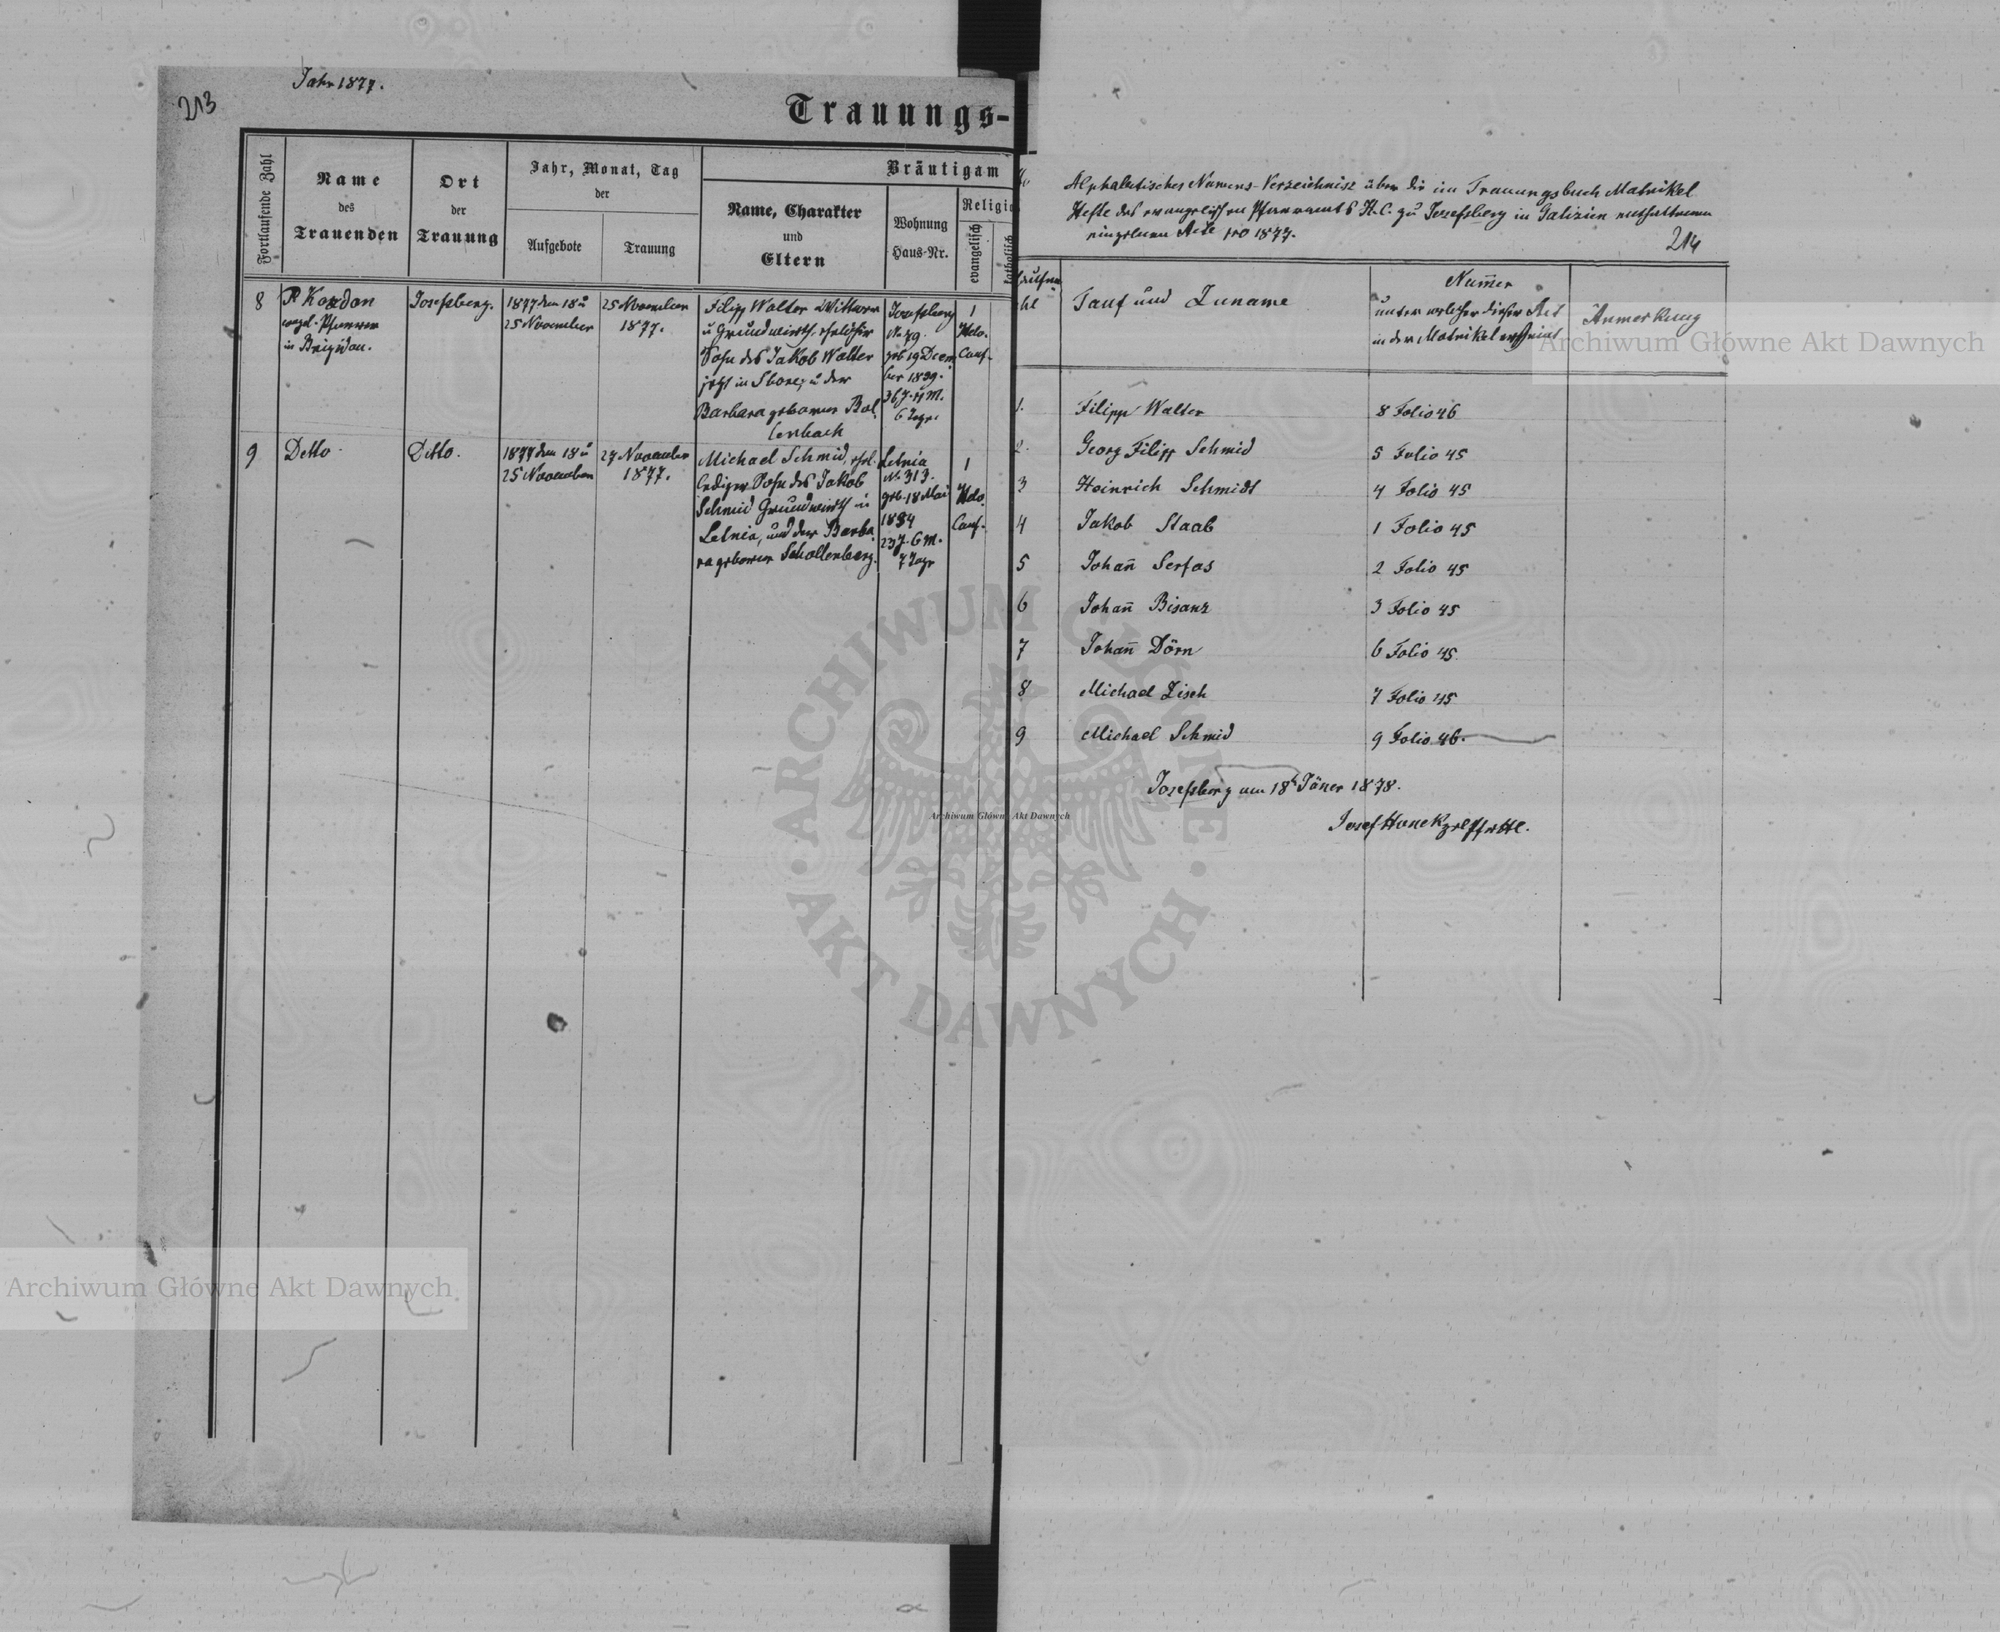 213
Jahr 1877.
Trauungs-
Fortlaufende Zahl
Name
des
Trauenden
Ort
der
Trauung
Jahr, Monat, Tag
der
Aufgebote
Trauung
Bräutigam
Name, Charakter
und
Eltern
Wohnung
Haus-Nr.
Religio
evangelisch
katholisch
8
P. Kozdon
evngl. Pfarrer
in Brigidau.
Josefsberg.
1877 den 18 u
25 November
25 November
1877.
Filipp Walter Wittwer
u Grundwirth, ehelicher
Sohn des Jakob Walter
jetzt in Sbora, u der
Barbara geborner Bol
lenbach
Josefsberg
No. 79
geb 19 Decem
ber 1839.
6 Tage.
1
Helv.
Conf.
9
Detto.
Detto.
1877 den 18 u
25 November
27 November
1877.
Michael Schmid, ehel.
lediger Sohn des Jakob
Schmid Grundwirth in
Letnia, und der Barba
ra geborner Schollenberg.
Letnia
No. 313.
geb. 18 Mai
1854
23 J. 6 M.
7 Tage
1
Helv.
Conf.
Alphabetisches Namens-Verzeichniss über die im Trauungsbuch Matrikel
Hefte des evangelischen Pfarramts H.C. zu Josefsberg in Galizien enthaltenen
einzelnen Acte pro 1877.
214
Tauf und Zuname
Num̄er
unter welcher dieser Act
in der Matrikel erscheint
Anmerkung
1. Filipp Walter 8 Folio 46
2. Georg Filipp Schmid 5 Folio 45
3 Heinrich Schmidt 4 Folio 45
4 Jakob Staab 1 Folio 45
5 Johan̄ Serfas 2 Folio 45
6 Johan̄ Bisanz 3 Folio 45
7 Johan̄ Dörn 6 Folio 45
8 Michael Zisch 7 Folio 45
9 Michael Schmid 9 Folio 46.
Josefsberg am 18t Jäner 1878.
Josef Hanek
Archiwum Główne Akt Dawnych
ARCHIWUM GŁÓWNE
AKT DAWNYCH
Archiwum Główne Akt Dawnych
Archiwum Główne Akt Dawnych